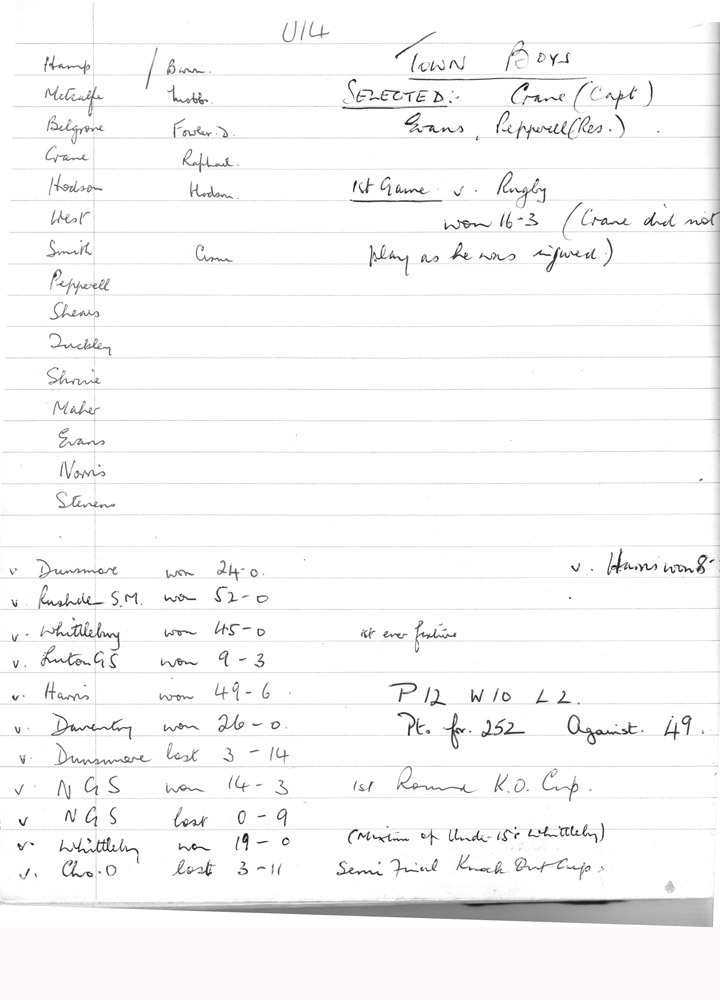 U14
Hamp / Brown. TOWN BOYS
Metcalfe Mobbs. SELECTED:- Crane (Capt)
Belgrove Fowler.D. Evans, Pepperell (Res.)
Crane Raphael.
Hodson Hodson. 1st Game v. Rugby
West won 16-3 (Crane did not
Smith play as he was injured.)
Pepperell
Shears
Tuckley
Shrive
Maher
Evans
Norris
Stevens
v Dunsmore won 24-0. v. Harris won 8-
v. Rushden S.M. won 52-0
v. Whittlebury won 45-0 1st ever fixture
v. Luton GS won 9-3
v. Harris won 49-6. P12 W10 L2.
v. Daventry won 26-0. Pts. for. 252 Against. 49.
v. Dunsmore lost 3-14
v. NGS won 14-3 1st Round K.O. Cup.
v NGS lost 0-9
v. Whittlebury won 19-0 (Mixture of Under 15's Whittlebury)
v. Cho.D lost 3-11 Semi Final Knock Out Cup.